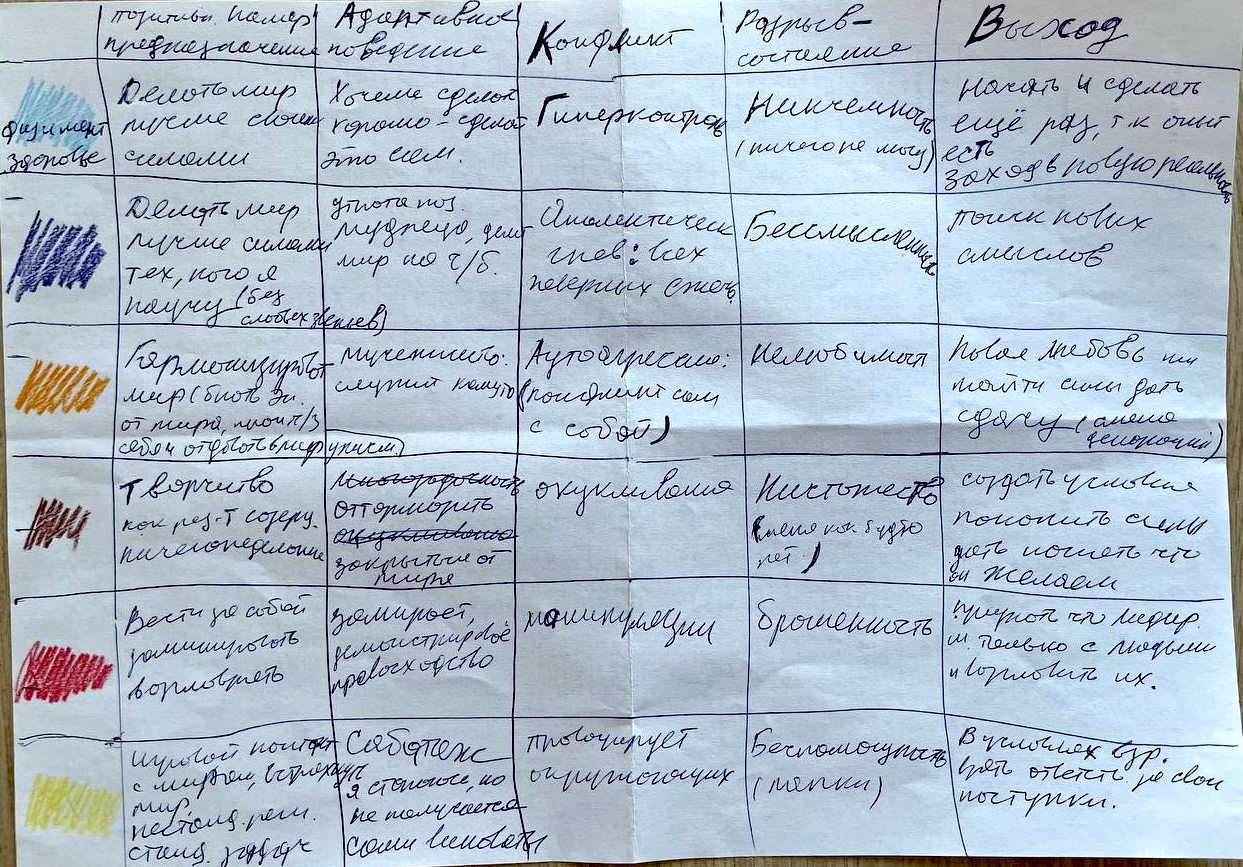 позитивн. намер.
предназначение
Адаптивное
поведение
Конфликт
Разрыв-
состояние
Выход
физ. и мент
здоровье
Делать мир
лучше своими
силами
Хочешь сделать
хорошо - сделай
это сам.
Гиперконтроль
Никчемность
(ничего не могу)
Начать и сделать
ещё раз, т.к опыт
есть
заход в новую реальность
Делать мир
лучше силами
тех, кого я
научу (без
слабых звеньев)
мудреца, делит
мир на ч/б.
гнев: всех
неверных сжечь.
Бессмысленность
поиск новых
смыслов
Гармонизировать
мир (
от мира,
себя и отдавать в мир
мученичество:
служит кому-то
Аутоагрессия:
(конфликт сам
с собой)
Нелюбимость
Новая любовь или
найти силы дать
сдачу (смена
декораций)
Творчество
как рез-т созерц.
ничегонеделание
многозадачность
оттормозить
окукливание
закрыться от
мира
окукливание
Ничтожество
(меня как будто
нет.)
создать условия
накопить силы
дать понять что
он желаем
Вести за собой
доминировать
возглавлять
замирает,
демонстрирует
превосходство
манипуляции
брошенность
лидер.
м. только с людьми
и возглавить их.
Игровой контакт
с миром, встряхнуть
мир,
нестанд. реш.
станд. задач
Саботаж
я стараюсь, но
не получается
сами виноваты
провоцирует
окружающих
Беспомощность
(лапки)
В условиях огр.
взять ответств. за свои
поступки.